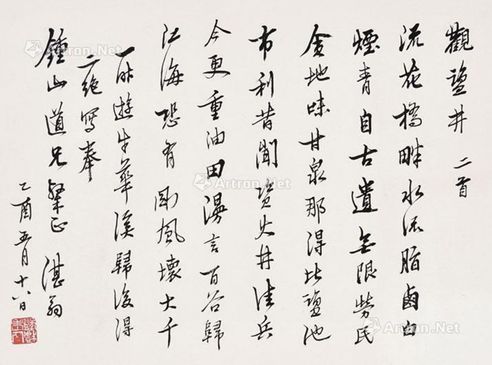 觀鹽井 二首
流花橋畔水流脂鹵白
煙青自古遺無限勞民
食地味甘泉那得比鹽池
市利昔聞資火井佳兵
今更重油田漫言百谷歸
江海恐有剛風壞大千
一昨遊牛華溪歸後得
二絕寫奉
鍾山道兄粲正 湛翁
乙酉五月十八日
Artron.Net